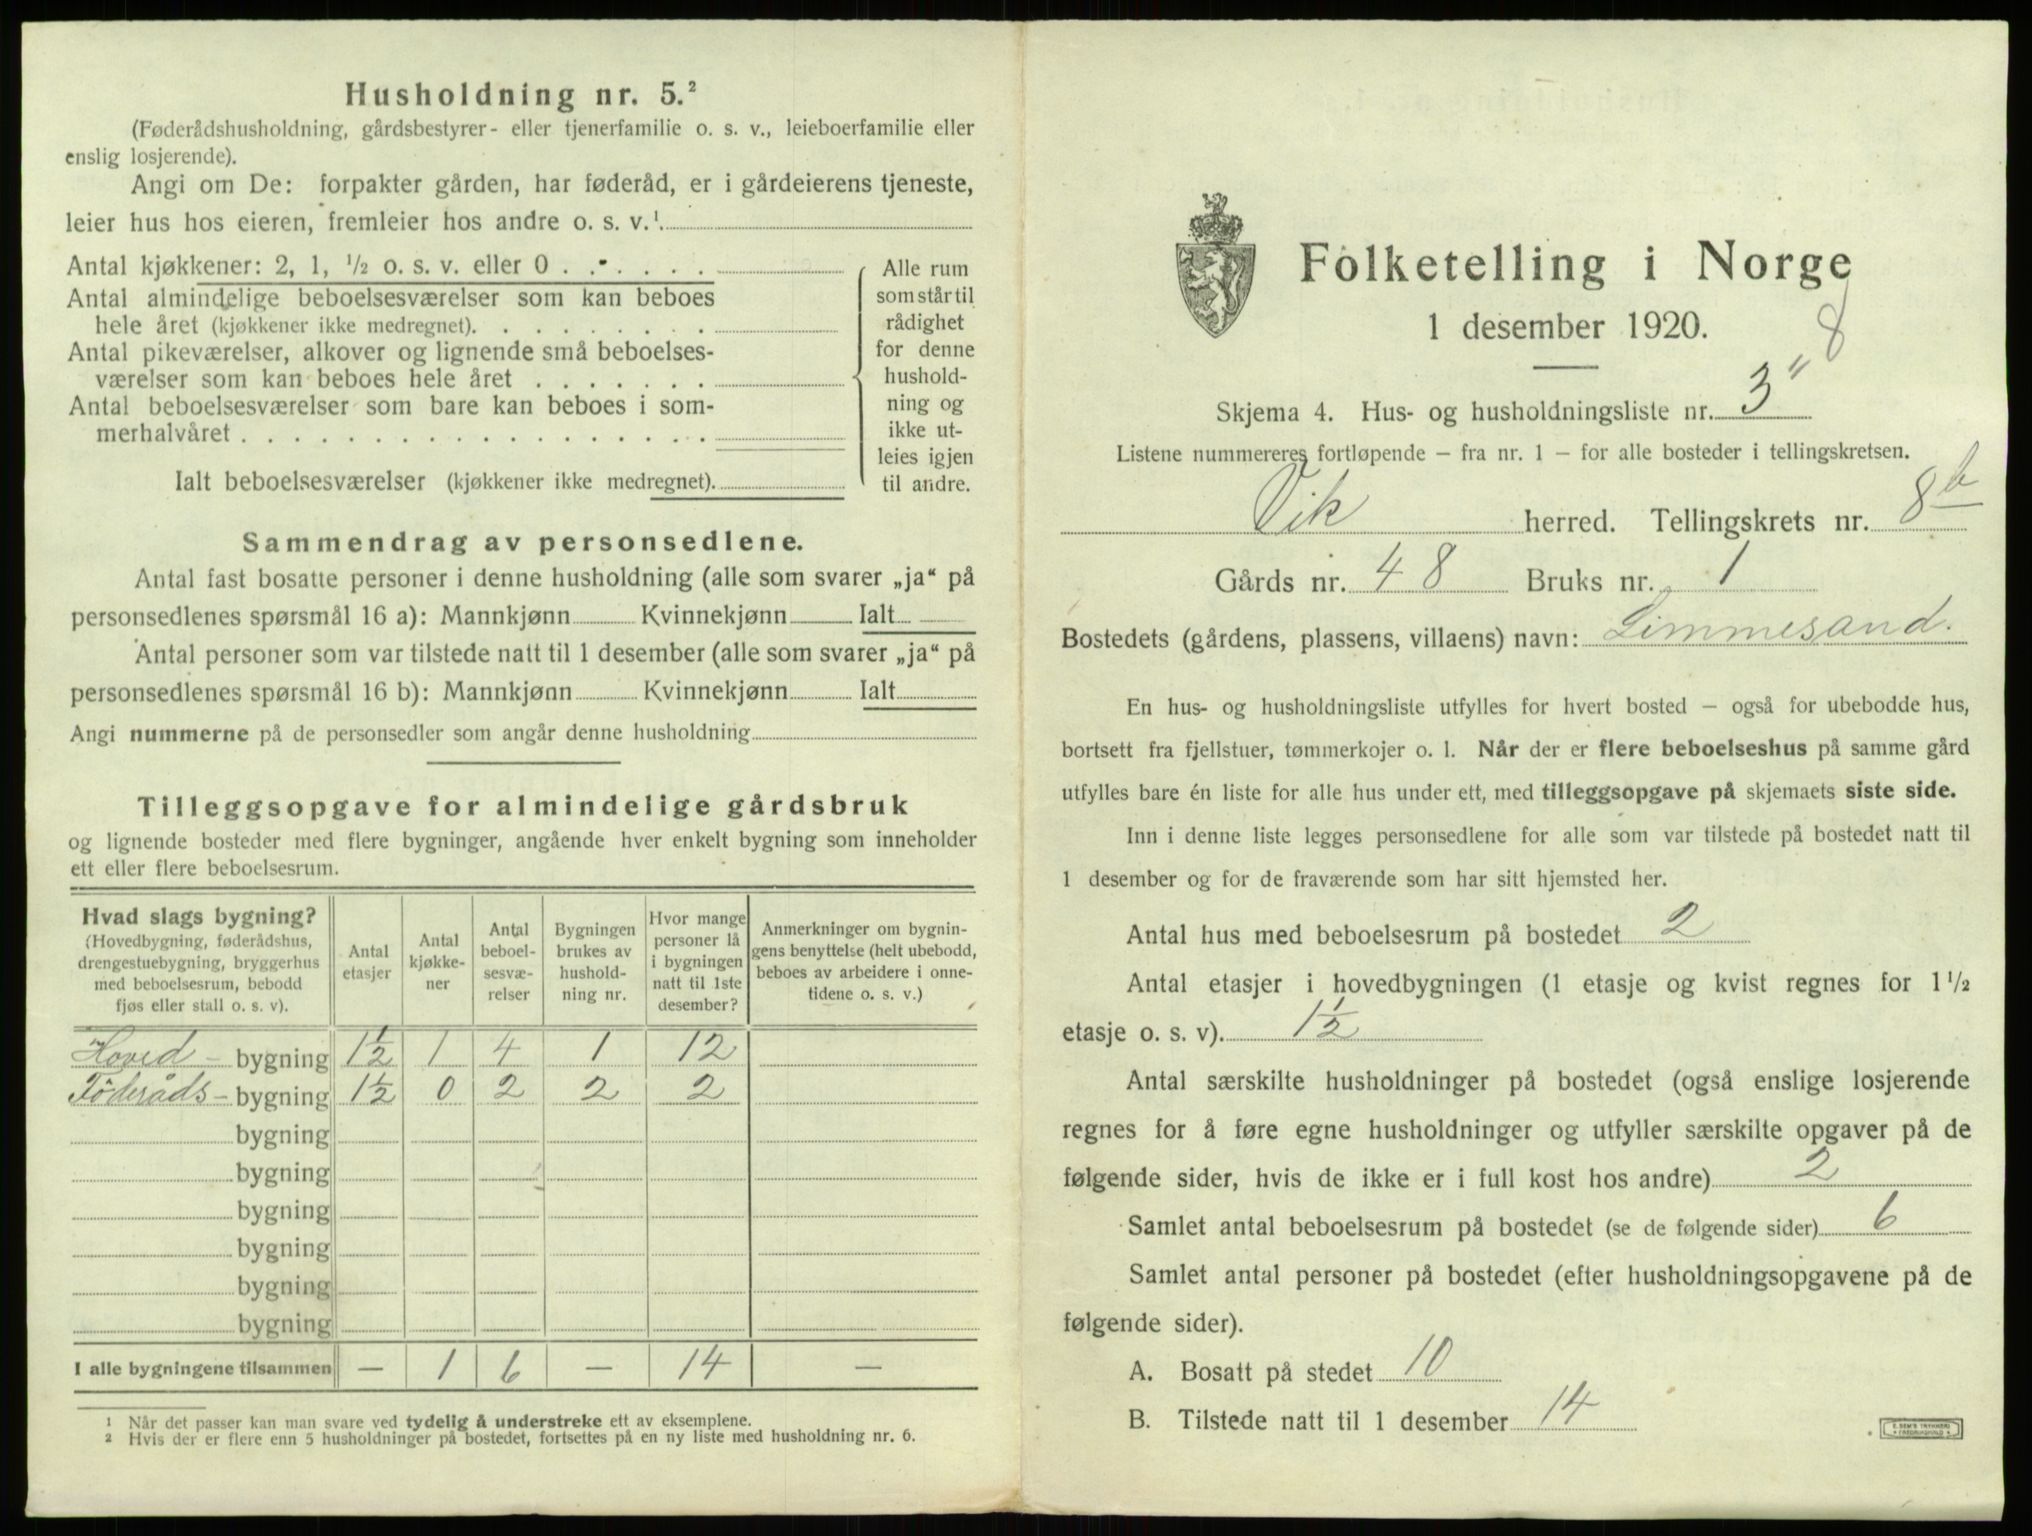 Husholdning nr. 5.²
(Føderådshusholdning, gårdsbestyrer- eller tjenerfamilie o. s. v., leieboerfamilie eller
enslig losjerende).
Angi om De: forpakter gården, har føderåd, er i gårdeierens tjeneste,
leier hus hos eieren, fremleier hos andre o. s. v.¹
Antal kjøkkener: 2, 1, ½ o. s. v. eller 0 . . . . . .
Antal almindelige beboelsesværelser som kan beboes
hele året (kjøkkener ikke medregnet). . . . . . . . .
Antal pikeværelser, alkover og lignende små beboelses-
værelser som kan beboes hele året . . . . . . .
Antal beboelsesværelser som bare kan beboes i som-
merhalvåret . . . . . . . . . . . . . . . . . .
Ialt beboelsesværelser (kjøkkener ikke medregnet).
Alle rum
som står til
rådighet
for denne
hushold-
ning og
ikke ut-
leies igjen
til andre.
Sammendrag av personsedlene.
Antal fast bosatte personer i denne husholdning (alle som svarer „ja“ på
personsedlenes spørsmål 16 a): Mannkjønn Kvinnekjønn Ialt
Antal personer som var tilstede natt til 1 desember (alle som svarer „ja“ på
personsedlenes spørsmål 16 b): Mannkjønn Kvinnekjønn Ialt
Angi nummerne på de personsedler som angår denne husholdning
Tilleggsopgave for almindelige gårdsbruk
og lignende bosteder med flere bygninger, angående hver enkelt bygning som inneholder
ett eller flere beboelsesrum.
Hvad slags bygning?
(Hovedbygning, føderådshus,
drengestuebygning, bryggerhus
med beboelsesrum, bebodd
fjøs eller stall o. s. v).
Antal
etasjer
Antal
kjøkke-
ner
Antal
beboel-
sesvæ-
relser
Bygningen
brukes av
hushold-
ning nr.
Hvor mange
personer lå
i bygningen
natt til 1ste
desember?
Anmerkninger om bygnin-
gens benyttelse (helt ubebodd,
beboes av arbeidere i onne-
tidene o. s. v.)
Hoved- bygning 1½ 1 4 1 12
Föderåds- bygning 1½ 0 2 2 2
bygning
bygning
bygning
bygning
bygning
bygning
I alle bygningene tilsammen — 1 6 — 14 —
¹ Når det passer kan man svare ved tydelig å understreke ett av eksemplene.
² Hvis der er flere enn 5 husholdninger på bostedet, fortsettes på en ny liste med husholdning nr. 6.
Folketelling i Norge
1 desember 1920.
8
Skjema 4. Hus- og husholdningsliste nr. 3"
Listene nummereres fortløpende – fra nr. 1 – for alle bosteder i tellingskretsen.
Vik herred. Tellingskrets nr. 8b
Gårds nr. 48 Bruks nr. 1
Bostedets (gårdens, plassens, villaens) navn: Limmesand.
En hus- og husholdningsliste utfylles for hvert bosted – også for ubebodde hus,
bortsett fra fjellstuer, tømmerkojer o. l. Når der er flere beboelseshus på samme gård
utfylles bare én liste for alle hus under ett, med tilleggsopgave på skjemaets siste side.
Inn i denne liste legges personsedlene for alle som var tilstede på bostedet natt til
1 desember og for de fraværende som har sitt hjemsted her.
Antal hus med beboelsesrum på bostedet 2
Antal etasjer i hovedbygningen (1 etasje og kvist regnes for 1½
etasje o. s. v). 1½
Antal særskilte husholdninger på bostedet (også enslige losjerende
regnes for å føre egne husholdninger og utfyller særskilte opgaver på de
følgende sider, hvis de ikke er i full kost hos andre) 2
Samlet antal beboelsesrum på bostedet (se de følgende sider) 6
Samlet antal personer på bostedet (efter husholdningsopgavene på de
følgende sider).
A. Bosatt på stedet 10
B. Tilstede natt til 1 desember 14
E. SEM'S TRYKKERI
FREDRIKSHALD